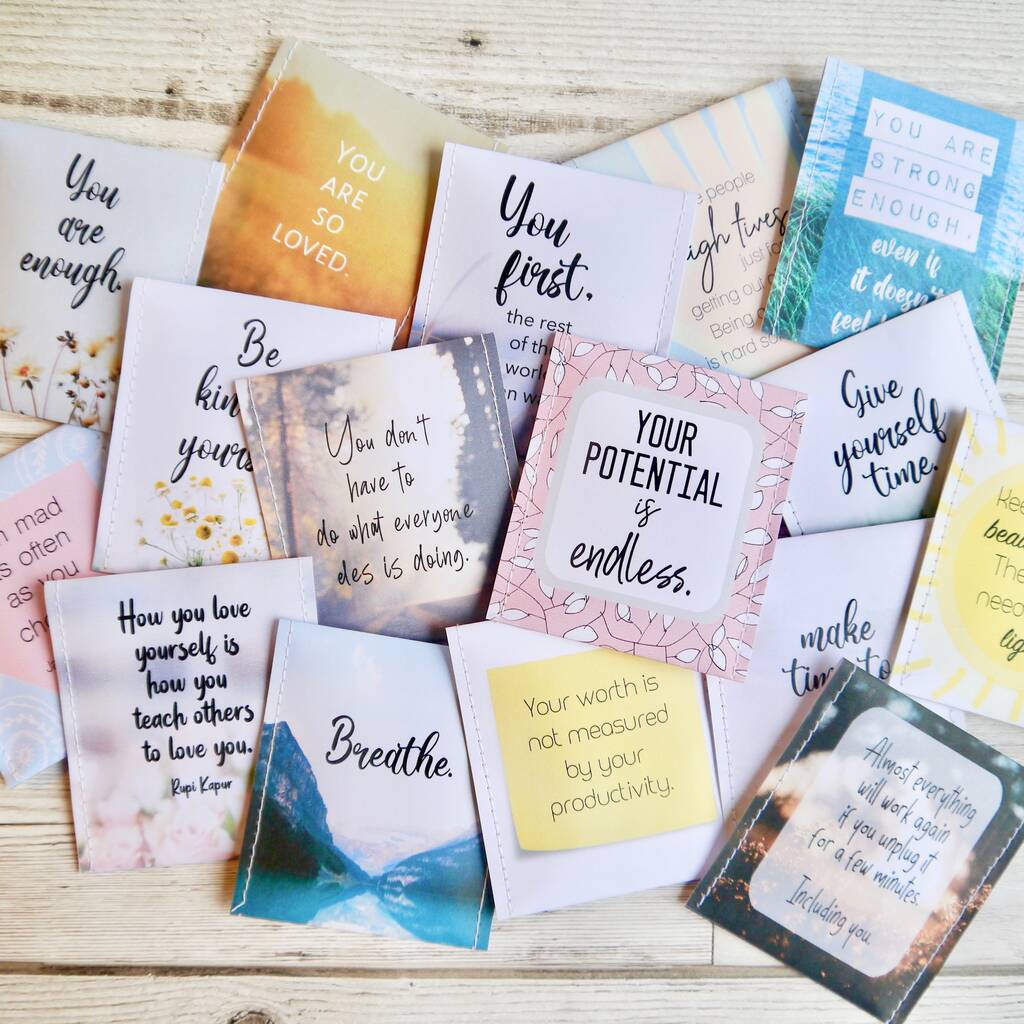 You
are
enough.
YOU
ARE
SO
LOVED.
You
first,
the rest
of the
people
just
getting out
Being
is hard
YOU ARE
STRONG
ENOUGH,
even if
it doesn't
feel
Be
yours
You don't
have to
do what everyone
eles is doing.
YOUR
POTENTIAL
is
endless.
Give
yourself
time.
mad
as often
as you
How you love
yourself is
how you
teach others
to love you.
Rupi Kapur
Breathe.
Your worth is
not measured
by your
productivity.
make
time to
need
Almost everything
will work again
if you unplug it
for a few minutes.
Including you.